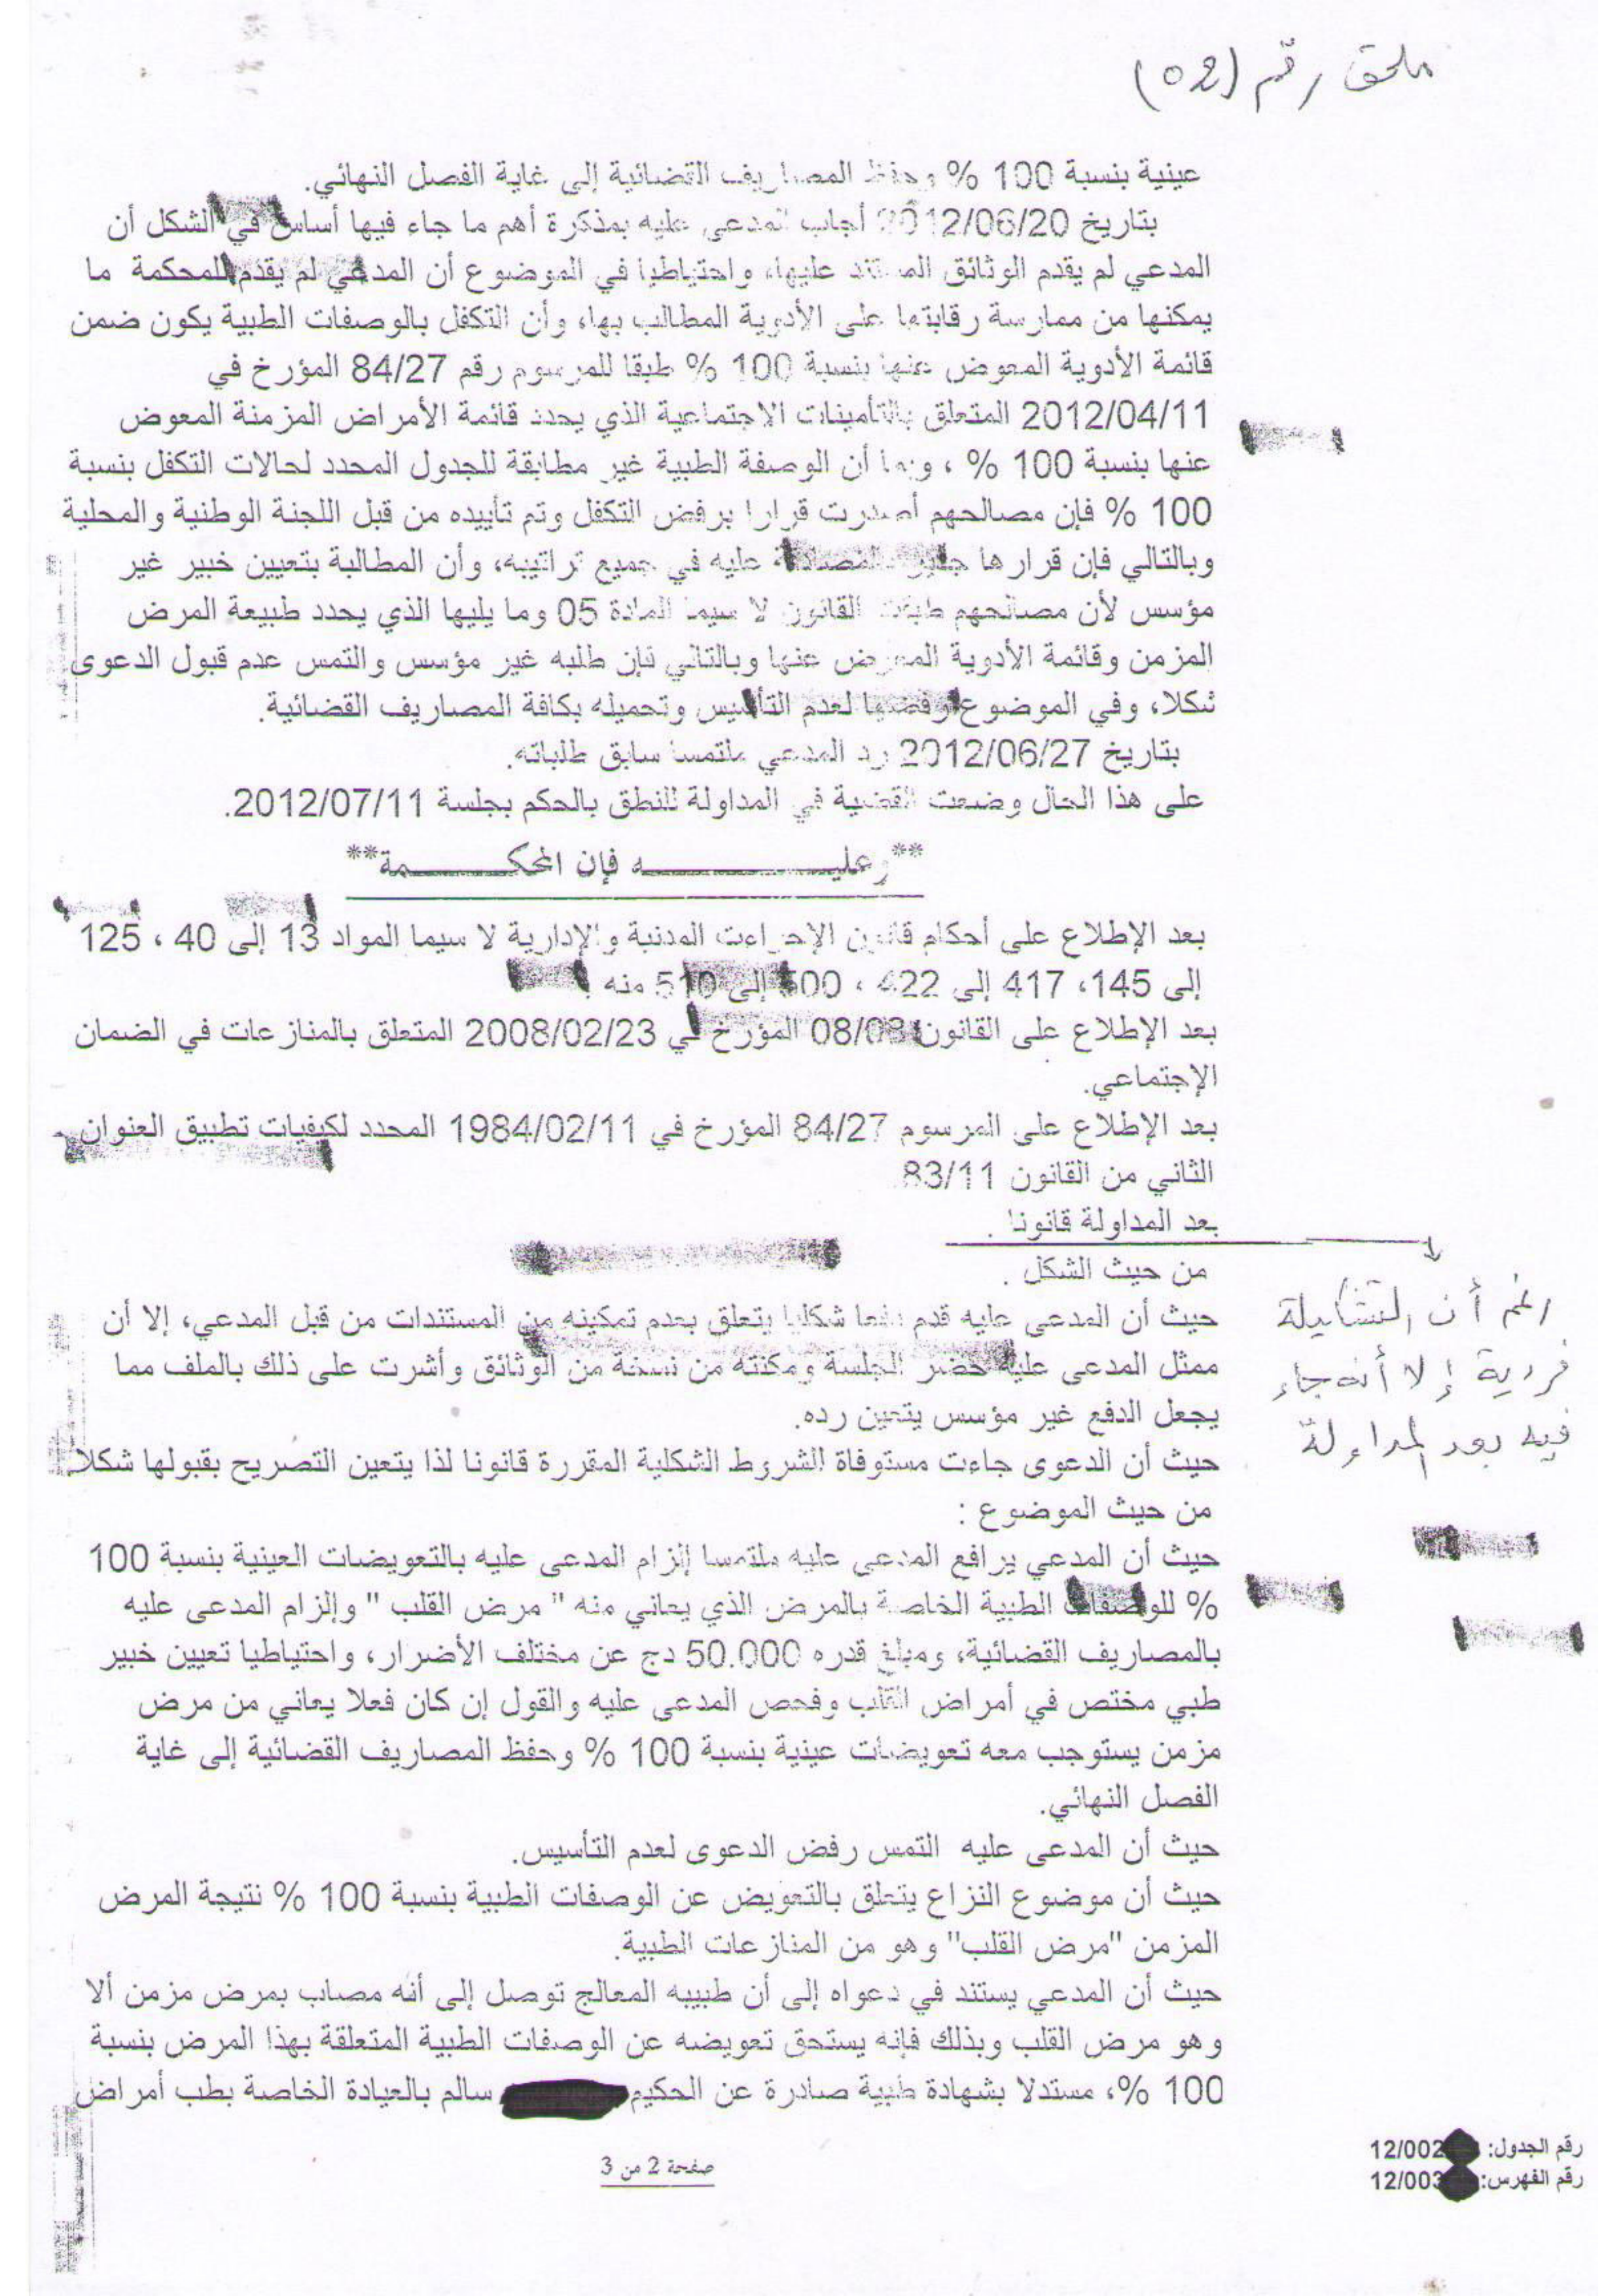 ملحق رقم (02)
عينية بنسبة 100 % وحفظ المصاريف القضائية إلى غاية الفصل النهائي.
بتاريخ 2012/06/20 أجاب المدعى عليه بمذكرة أهم ما جاء فيها أساسا في الشكل أن
المدعي لم يقدم الوثائق المستند عليها، واحتياطيا في الموضوع أن المدعي لم يقدم للمحكمة ما
يمكنها من ممارسة رقابتها على الأدوية المطالب بها، وأن التكفل بالوصفات الطبية يكون ضمن
قائمة الأدوية المعوض عنها بنسبة 100 % طبقا للمرسوم رقم 84/27 المؤرخ في
2012/04/11 المتعلق بالتأمينات الاجتماعية الذي يحدد قائمة الأمراض المزمنة المعوض
عنها بنسبة 100 % ، وبما أن الوصفة الطبية غير مطابقة للجدول المحدد لحالات التكفل بنسبة
100 % فإن مصالحهم أصدرت قرارا برفض التكفل وتم تأييده من قبل اللجنة الوطنية والمحلية
وبالتالي فإن قرارها جدير بالمصادقة عليه في جميع تراتيبه، وأن المطالبة بتعيين خبير غير
مؤسس لأن مصالحهم طبقت القانون لا سيما المادة 05 وما يليها الذي يحدد طبيعة المرض
المزمن وقائمة الأدوية المعوض عنها وبالتالي فإن طلبه غير مؤسس والتمس عدم قبول الدعوى
شكلا، وفي الموضوع رفضها لعدم التأسيس وتحميله بكافة المصاريف القضائية.
بتاريخ 2012/06/27 رد المدعي ملتمسا سابق طلباته.
على هذا الحال وضعت القضية في المداولة للنطق بالحكم بجلسة 2012/07/11.
**وعليـــــــــه فإن المحكـــــــمة**
بعد الإطلاع على أحكام قانون الإجراءات المدنية والإدارية لا سيما المواد 13 إلى 40 ، 125
إلى 145، 417 إلى 422 ، 500 إلى 510 منه .
بعد الإطلاع على القانون 08/08 المؤرخ في 2008/02/23 المتعلق بالمنازعات في الضمان
الإجتماعي.
بعد الإطلاع على المرسوم 84/27 المؤرخ في 1984/02/11 المحدد لكيفيات تطبيق العنوان
الثاني من القانون 83/11
بعد المداولة قانونا .
من حيث الشكل .
رغم أن التشكيلة
فردية إلا أنه جاء
فيه بعد المداولة
حيث أن المدعى عليه قدم دفعا شكليا يتعلق بعدم تمكينه من المستندات من قبل المدعي، إلا أن
ممثل المدعى عليه حضر الجلسة ومكنته من نسخة من الوثائق وأشرت على ذلك بالملف مما
يجعل الدفع غير مؤسس يتعين رده.
حيث أن الدعوى جاءت مستوفاة الشروط الشكلية المقررة قانونا لذا يتعين التصريح بقبولها شكلا
من حيث الموضوع :
حيث أن المدعي يرافع المدعى عليه ملتمسا إلزام المدعى عليه بالتعويضات العينية بنسبة 100
% للوصفات الطبية الخاصة بالمرض الذي يعاني منه " مرض القلب " وإلزام المدعى عليه
بالمصاريف القضائية، ومبلغ قدره 50.000 دج عن مختلف الأضرار، واحتياطيا تعيين خبير
طبي مختص في أمراض القلب وفحص المدعى عليه والقول إن كان فعلا يعاني من مرض
مزمن يستوجب معه تعويضات عينية بنسبة 100 % وحفظ المصاريف القضائية إلى غاية
الفصل النهائي.
حيث أن المدعى عليه التمس رفض الدعوى لعدم التأسيس.
حيث أن موضوع النزاع يتعلق بالتعويض عن الوصفات الطبية بنسبة 100 % نتيجة المرض
المزمن "مرض القلب" وهو من المنازعات الطبية.
حيث أن المدعي يستند في دعواه إلى أن طبيبه المعالج توصل إلى أنه مصاب بمرض مزمن ألا
وهو مرض القلب وبذلك فإنه يستحق تعويضه عن الوصفات الطبية المتعلقة بهذا المرض بنسبة
100 %، مستدلا بشهادة طبية صادرة عن الحكيم سالم بالعيادة الخاصة بطب أمراض
رقم الجدول: 12/002
رقم الفهرس: 12/003
صفحة 2 من 3